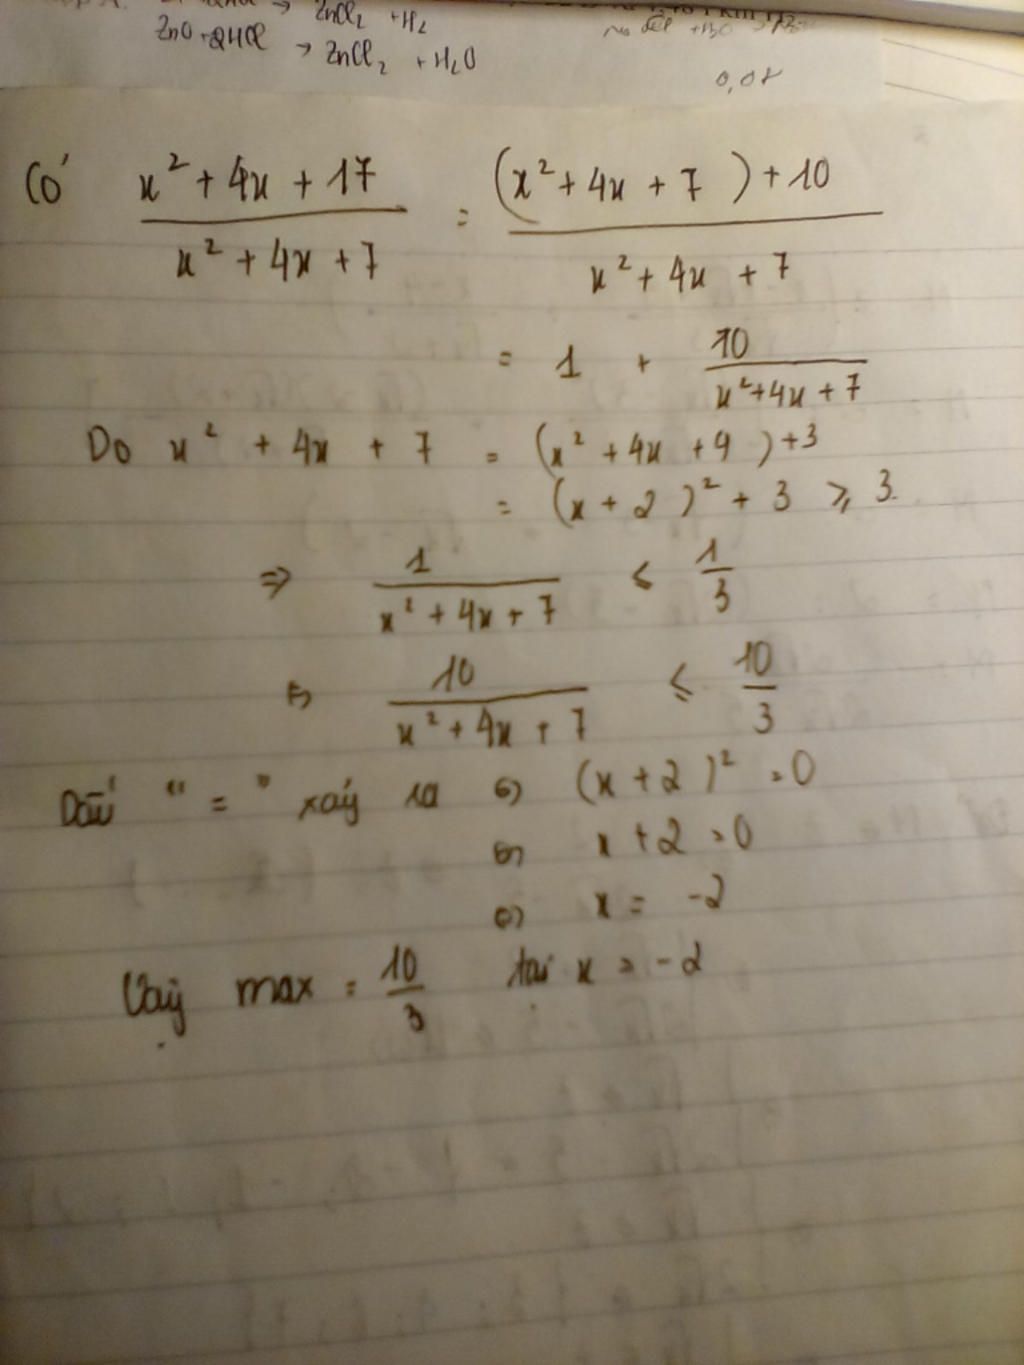 → ZnCl₂ + H₂
ZnO + 2HCl → ZnCl₂ + H₂O
0,08
Có (x² + 4x + 17)/(x² + 4x + 7) = ((x² + 4x + 7) + 10)/(x² + 4x + 7)
= 1 + 10/(x² + 4x + 7)
Do x² + 4x + 7 = (x² + 4x + 4) + 3
= (x + 2)² + 3 ⩾ 3
⇒ 1/(x² + 4x + 7) ≤ 1/3
⇒ 10/(x² + 4x + 7) ≤ 10/3
Dấu " = " xảy ra ⇔ (x + 2)² = 0
⇔ x + 2 = 0
⇔ x = -2
Vậy max = 10/3 tại x = -2